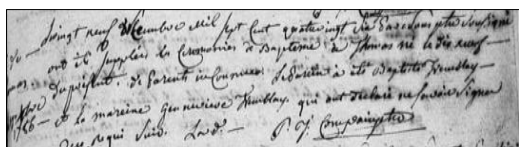 vingt neuf decembre mil sept cent quatre vingt six par nous ptre soussigné
ont été supplées les Ceremonies de Baptême à Thomas né le dix neuf
du présent, de Parent inconnus. le Parein à été Baptiste Tremblay
et la mareine genevieve Tremblay, qui ont declaré ne savoir signer
ce qui suit. Lad. P. J. Compain ptre